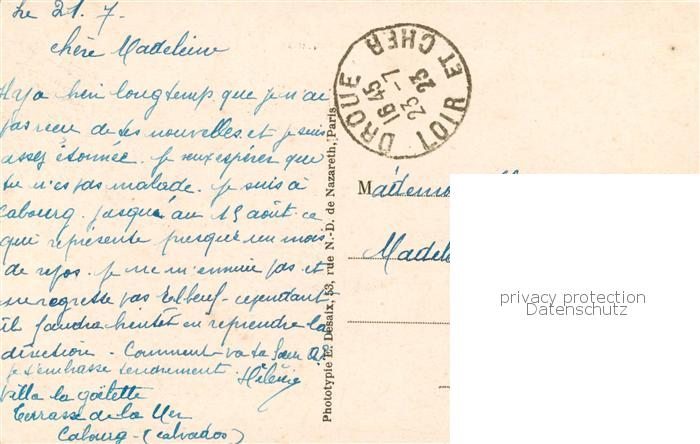 Le 21. 7.
chère Madeleine
Il y a bien longtemp que je n'ai
pas recu de tes nouvelles et je suis
assez étonnée. Je veux espérer que
tu n'es pas malade. Je suis à
Cabourg. jusqu'au 15 août. ce
qui représente presque un mois
de repos. Je ne m'ennuie pas et
ne regrette pas Elbeuf. cependant
il faudra bientôt en reprendre la
direction. Comment va ta Sœur
Je t'embrasse tendrement. Hélène
Villa la goëlette
Terrasse de la Mer
Cabourg - (Calvados)
Phototypie E. Desaix, 53, rue N.-D. de Nazareth, Paris
DROUE LOIR ET CHER
16 45
23 - 7
23
Mademo
Madele
privacy protection
Datenschutz